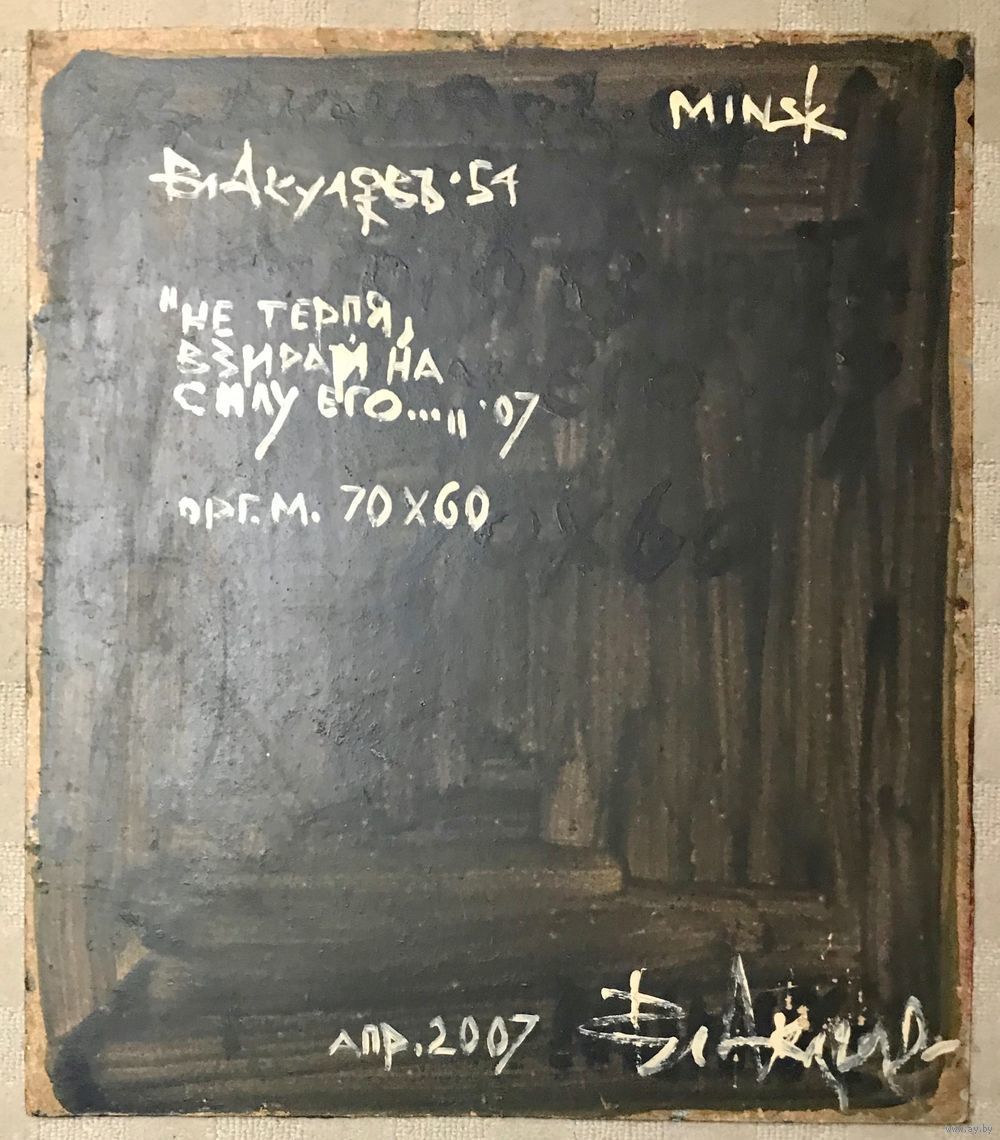 MINSK
Вл Акуловъ · 54
"НЕ ТЕРПЯ,
ВЗИРАЙ НА
СИЛУ ЕГО..." '07
орг. м. 70 X 60
апр. 2007
www.ay.by